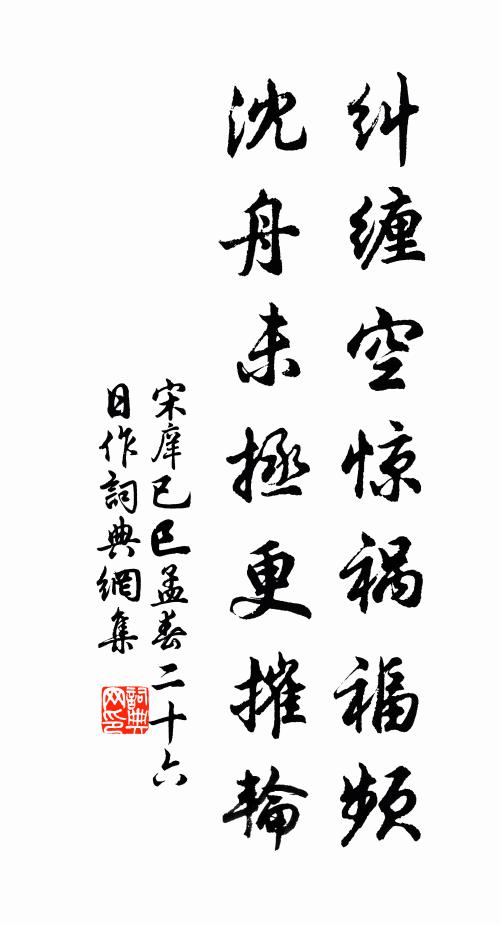 纠缠空惊祸福频
沈舟未拯更摧輪
宋庠己巳孟春二十六
日作詞典網集
詞典网印